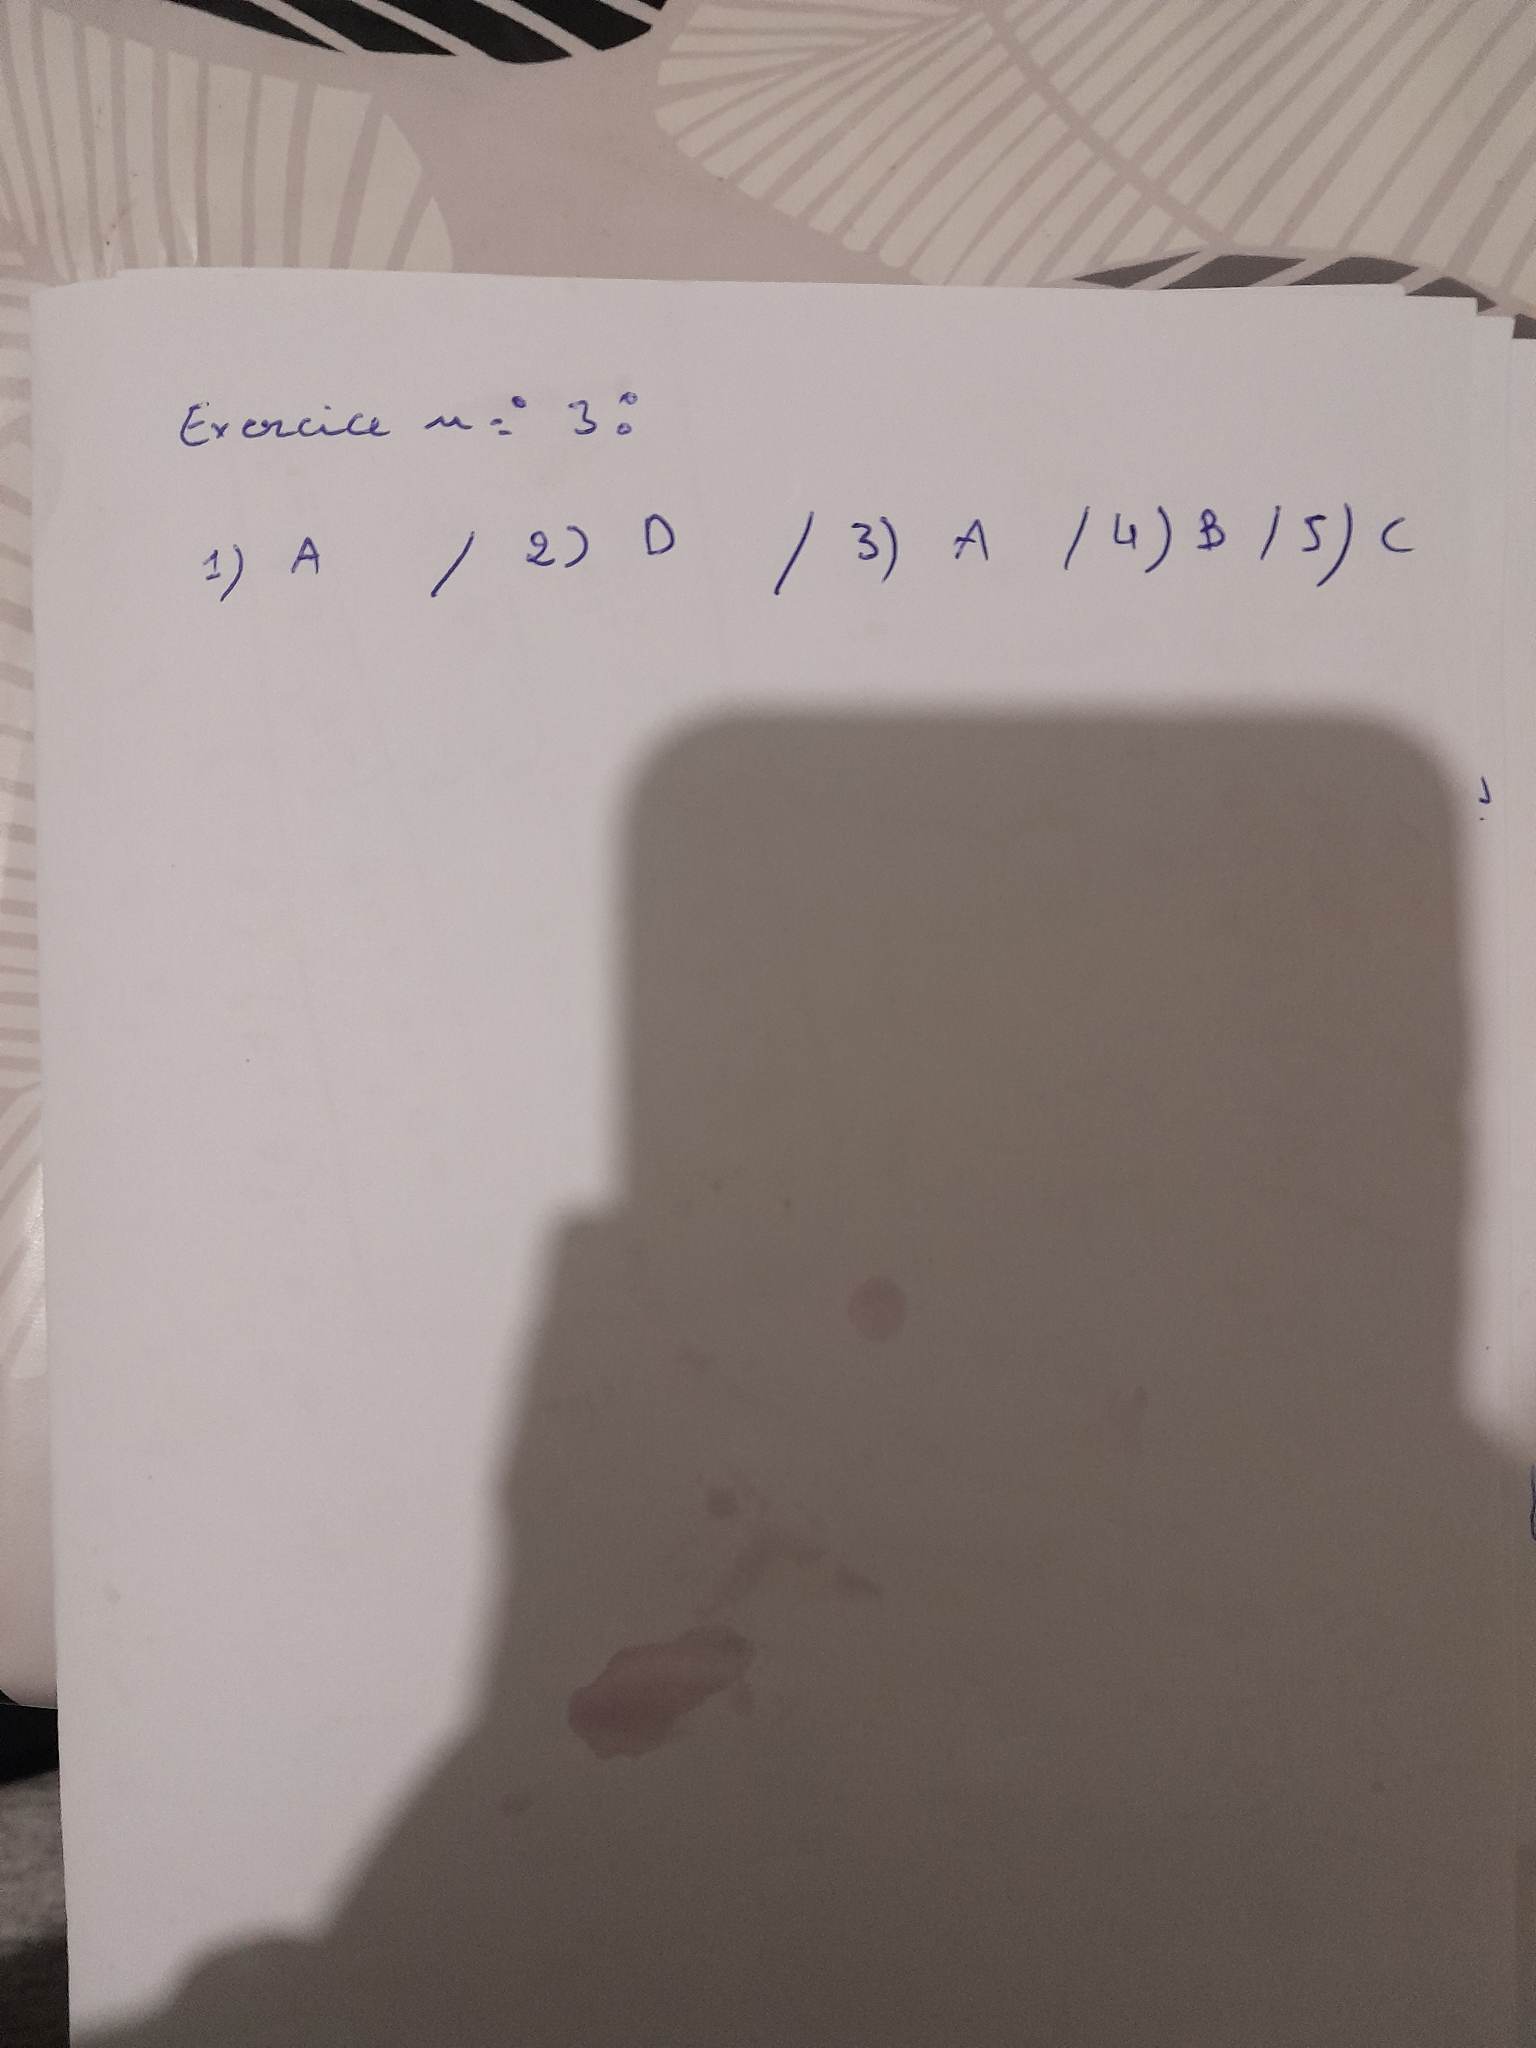 Exercice n=° 3:
1) A / 2) D / 3) A / 4) B / 5) C